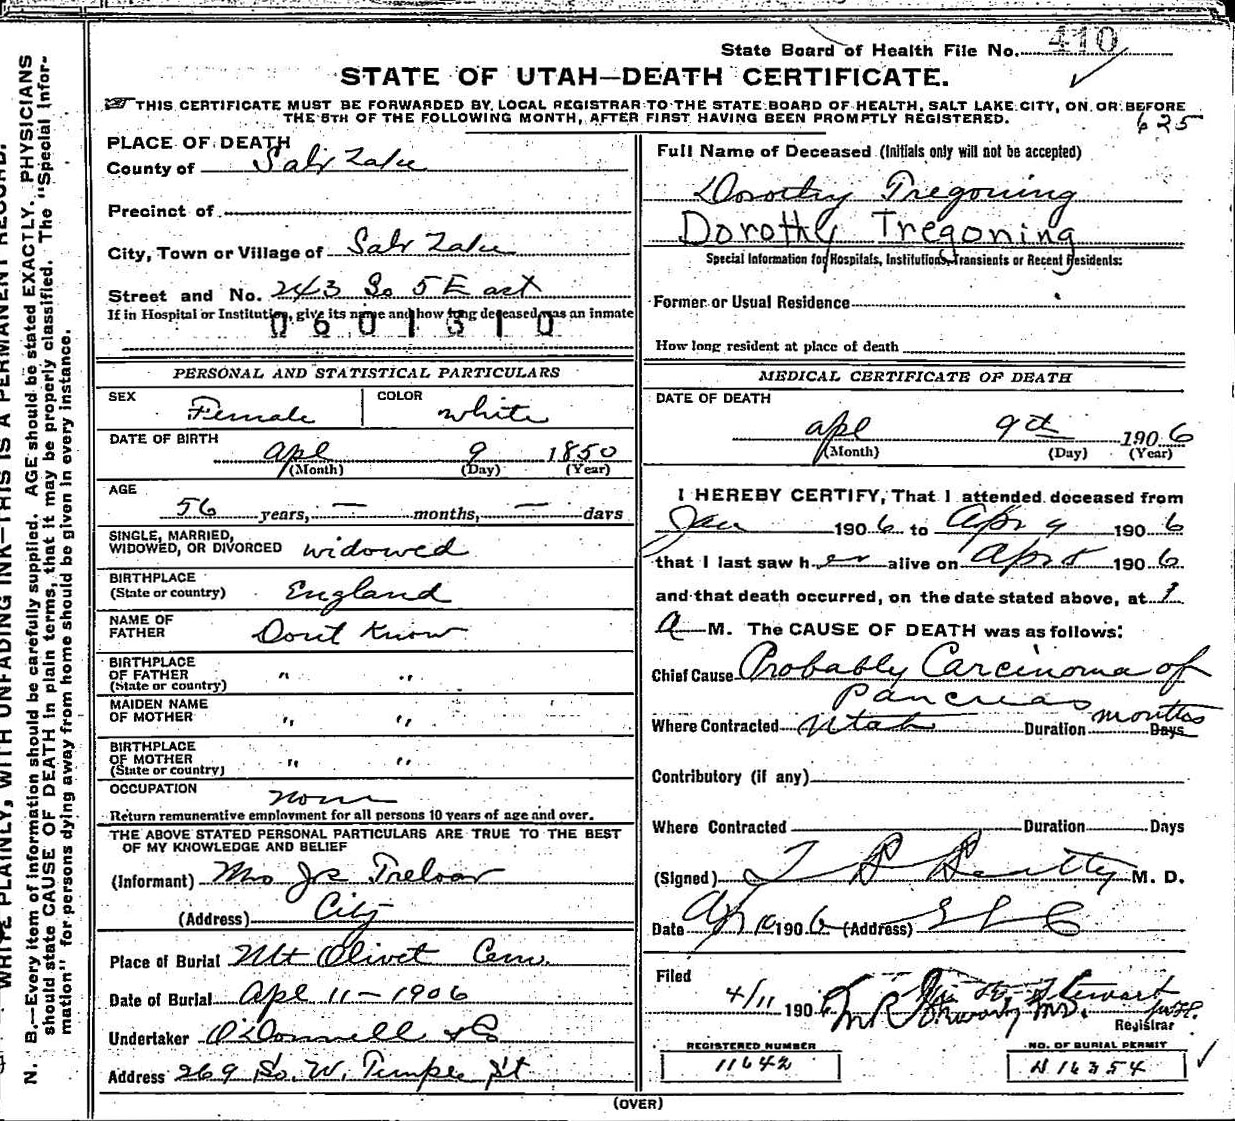 State Board of Health File No. 410
STATE OF UTAH—DEATH CERTIFICATE.
THIS CERTIFICATE MUST BE FORWARDED BY LOCAL REGISTRAR TO THE STATE BOARD OF HEALTH, SALT LAKE CITY, ON OR BEFORE
THE 5TH OF THE FOLLOWING MONTH, AFTER FIRST HAVING BEEN PROMPTLY REGISTERED.
625
PLACE OF DEATH
County of Salt Lake
Precinct of
City, Town or Village of Salt Lake
Street and No. 243 So 5 East
If in Hospital or Institution, give its name and how long deceased was an inmate
0601310
PERSONAL AND STATISTICAL PARTICULARS
SEX Female COLOR white
DATE OF BIRTH
Apl 9 1850
(Month) (Day) (Year)
AGE
56 years, — months, — days
SINGLE, MARRIED,
WIDOWED, OR DIVORCED widowed
BIRTHPLACE
(State or country) England
NAME OF
FATHER Dont Know
BIRTHPLACE
OF FATHER " "
(State or country)
MAIDEN NAME
OF MOTHER " "
BIRTHPLACE
OF MOTHER " "
(State or country)
OCCUPATION none
Return remunerative employment for all persons 10 years of age and over.
THE ABOVE STATED PERSONAL PARTICULARS ARE TRUE TO THE BEST
OF MY KNOWLEDGE AND BELIEF
(Informant) Mrs Treloar
(Address) City
Place of Burial Mt Olivet Cem.
Date of Burial Apl 11 - 1906
Undertaker O'Donnell & Co
Address 269 So. W. Temple St
Full Name of Deceased (Initials only will not be accepted)
Dorothy Tregoning
Dorothy Tregoning
Special Information for Hospitals, Institutions, Transients or Recent Residents:
Former or Usual Residence
How long resident at place of death
MEDICAL CERTIFICATE OF DEATH
DATE OF DEATH
Apl 9th 1906
(Month) (Day) (Year)
I HEREBY CERTIFY, That I attended deceased from
Jan 1906 to Apr 9 1906
that I last saw her alive on Apr 8 1906.
and that death occurred, on the date stated above, at 1
A M. The CAUSE OF DEATH was as follows:
Chief Cause Probably Carcinoma of
Pancreas
Where Contracted Utah Duration months Days
Contributory (if any)
Where Contracted Duration Days
(Signed) T B Beatty M. D.
Date Apr 10 1906 (Address) S L C
Filed
4/11 1906 Stewart
M.D. Registrar
REGISTERED NUMBER
11642
NO. OF BURIAL PERMIT
A 16354
(OVER)
WRITE PLAINLY, WITH UNFADING INK—THIS IS A PERMANENT RECORD.
N. B.—Every item of information should be carefully supplied. AGE should be stated EXACTLY. PHYSICIANS
should state CAUSE OF DEATH in plain terms, that it may be properly classified. The "Special Infor-
mation" for persons dying away from home should be given in every instance.